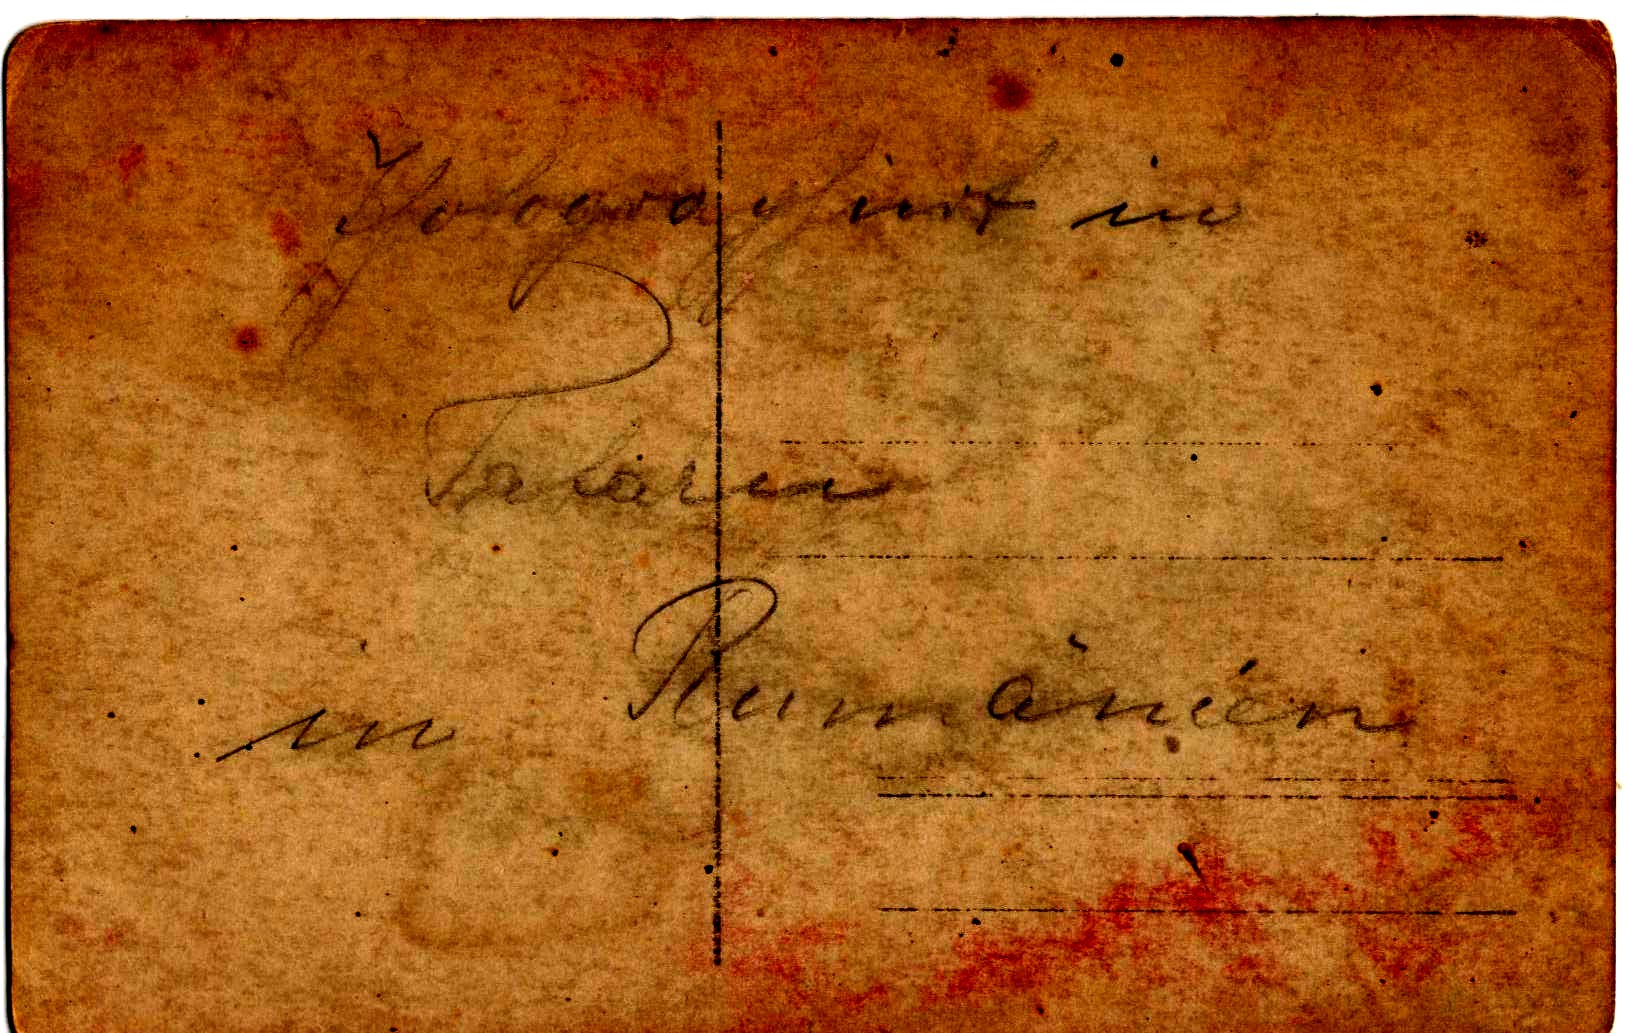 Fotografiert in
in Rumänien